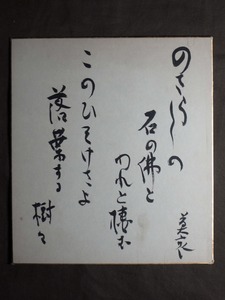 のさらしの
石の佛と
われと棲む
このひそけさよ
落葉する
樹々